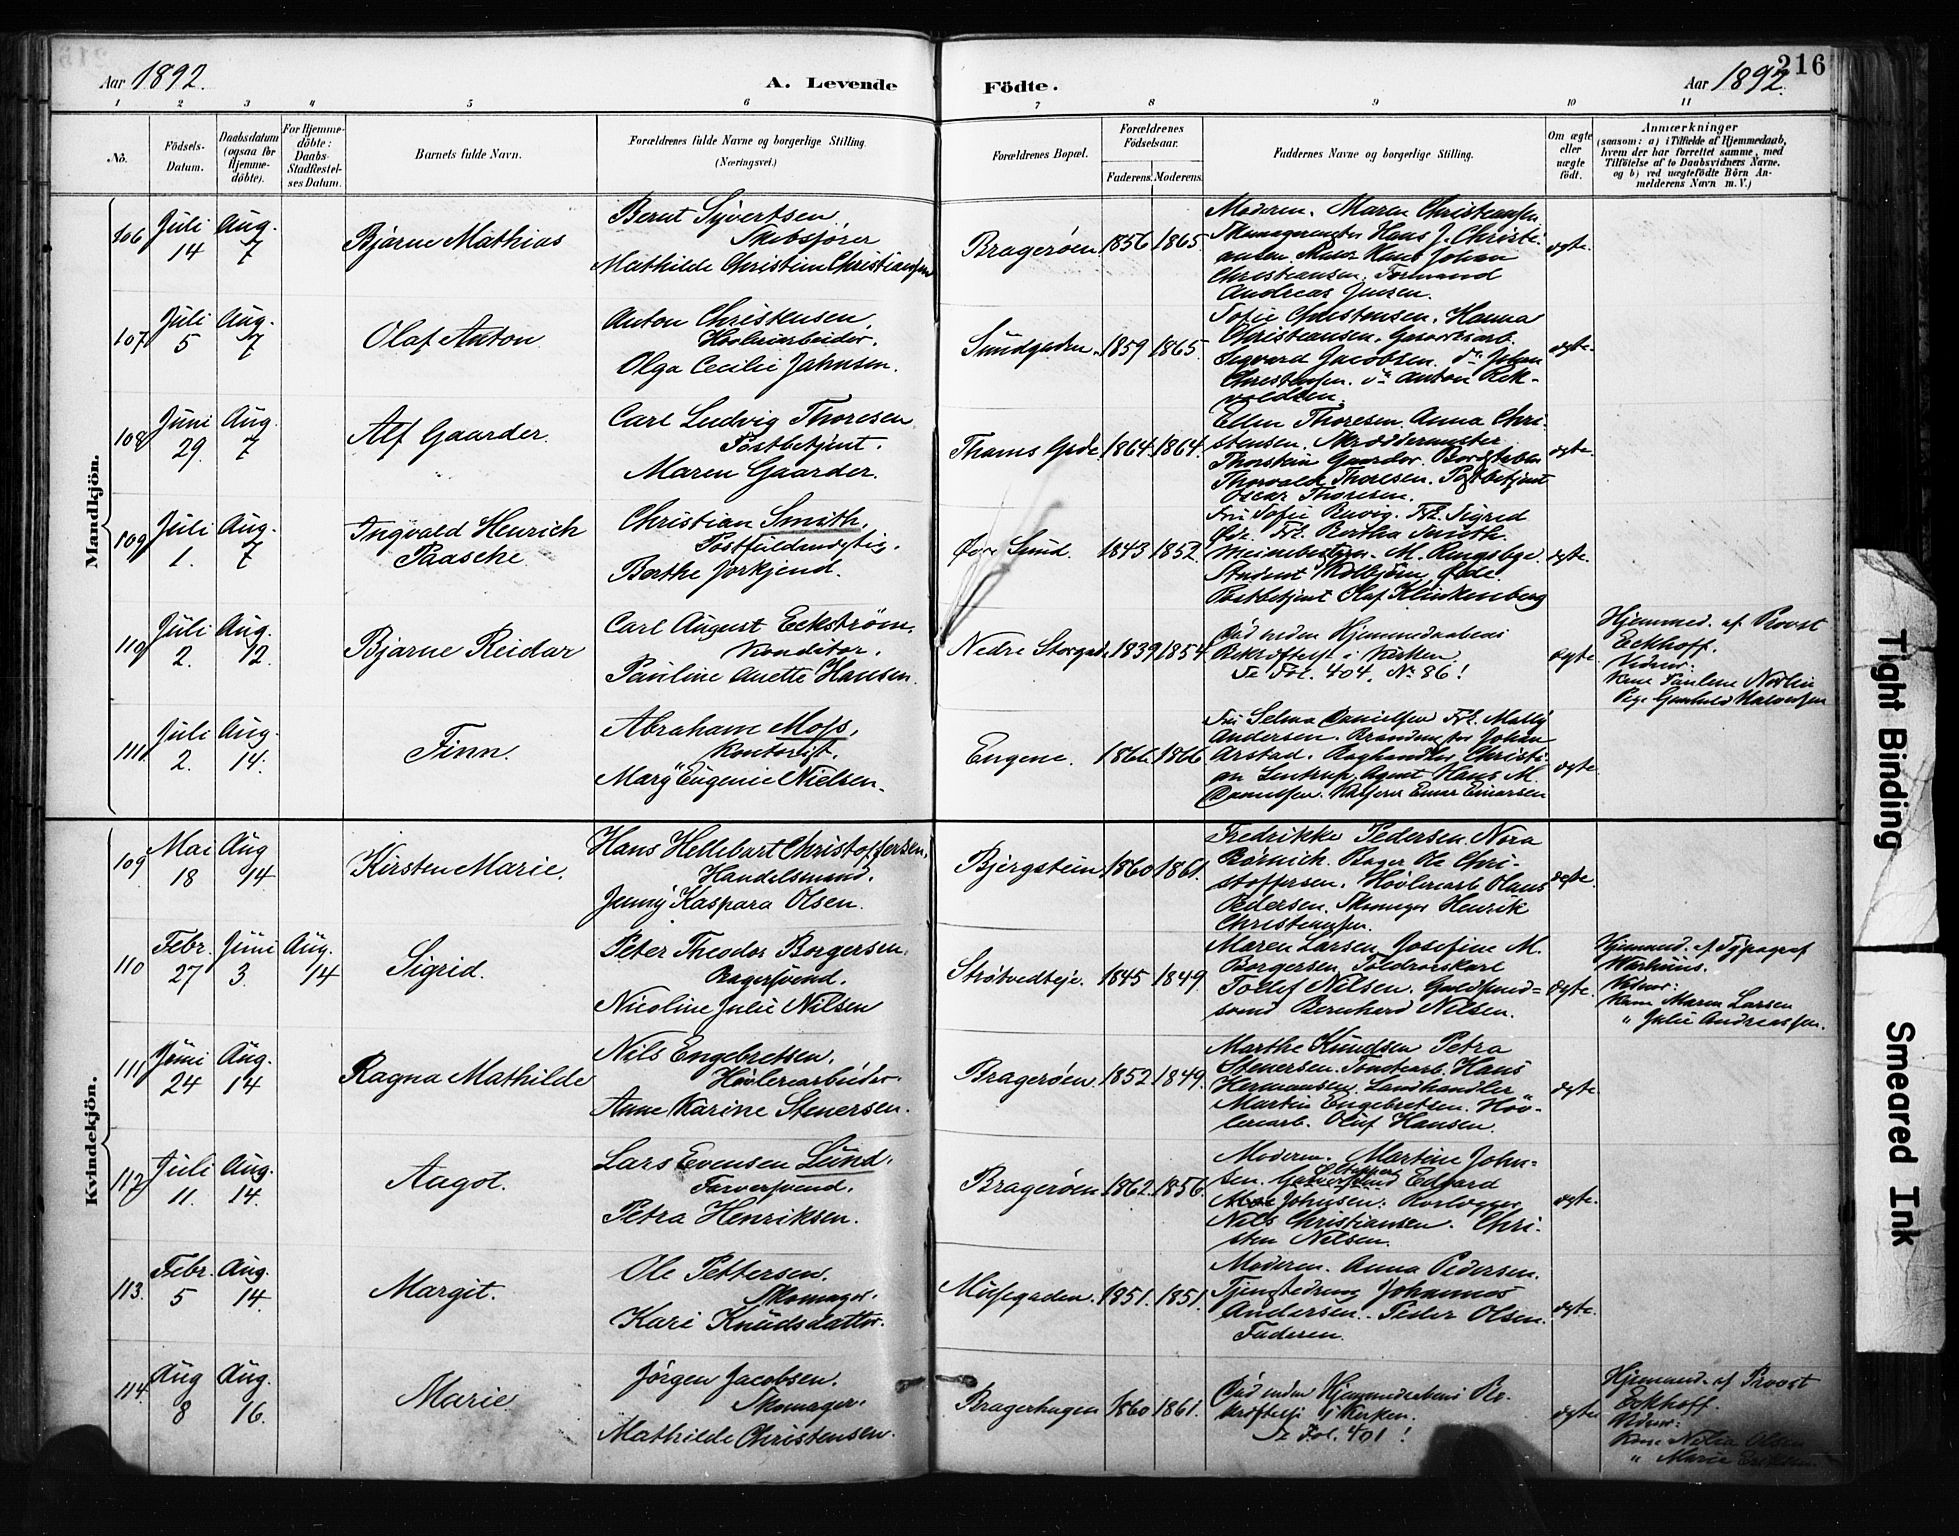 216
Aar 1892.
A. Levende
Födte.
Aar 1892.
1 2 3 4 5 6 7 8 9 10 11
No.
Födsels-
Datum.
Daabsdatum
(ogsaa for
Hjemme-
döbte).
For Hjemme-
döbte:
Daabs-
Stadfæstel-
ses Datum.
Barnets fulde Navn.
Forældrenes fulde Navne og borgerlige Stilling.
(Næringsvei.)
Forældrenes Bopæl.
Forældrenes
Födselsaar.
Faderens. Moderens.
Faddernes Navne og borgerlige Stilling.
Om ægte
eller
uægte
födt.
Anmærkninger
(saasom: a) i Tilfælde af Hjemmedaab,
hvem der har forrettet samme, med
Tilföielse af to Daabsvidners Navne,
og b) ved uægtefödte Börn An-
melderens Navn m. V.)
Mandkjön.
106 Juli 14 Aug. 7
Bjarne Mathias
Bernt Syvertsen,
Skibsfører
Mathilde Christine Christiansen
Bragerøen 1856 1865
Moderen. Maren Christiansen
Hans J. Christi-
ansen. Hans Johan
Christiansen. Formand
Andreas Jensen.
ægte.
107 Juli 5 Aug. 7
Olaf Anton.
Anton Christensen,
Høvleriarbeider.
Olga Cecilie Jahnsen.
Sundgaden. 1859 1865.
Sofie Christensen. Hanna
Christiansen.
Sigvard Jacobsen. do Johan
Christensen. do Anton
ægte.
108 Juni 29. Aug. 7
Alf Gaarder.
Carl Ludvig Thoresen
Postbetjent.
Maren Gaarder.
Thams Gade 1864. 1864.
Ellen Thoresen. Anna Chri-
stensen. Skræddermester
Thorstein Gaarder.
Thorvald Thoresen. Postbetjent
Oscar Thoresen.
ægte.
109 Juli 1. Aug. 7
Ingvald Henrich
Paasche
Christian Smith,
Postfuldmægtig.
Berthe Jorkjend.
Øvre Sund. 1843 1852.
Fru Sofie. Frk. Sigrid
Frk. Bertha Smith.
M. Ringsbye.
Student Kolbjørn
Postbetjent Olaf Klinkenberg
ægte.
110 Juli 2. Aug. 12.
Bjarne Reidar
Carl August Eckstrøm,
Konditor.
Pauline Anette Hansen.
Nedre Storgade 1839 1854
Død inden Hjemmedaabens
Bekræftelse i Kirken.
Se Fol. 404. No 86!
ægte.
Hjemmed. af Provst
Eckhoff.
Vidner:
Kone Pauline
Pige Gunhild Halvorsen
111 Juli 2. Aug. 14.
Finn.
Abraham Moss,
Kontorist.
Marg Eugenie Nielsen.
Engene. 1866. 1866
Fru Selma Danielsen Frk. Mally
Andersen. Johan
Arstad. Christi-
an Agent Hans M.
Danielsen. Einar Einarsen
ægte.
Kvindekjön.
109 Mai 18 Aug 14
Kirsten Marie.
Hans Hellebart Christoffersen,
Handelsmand.
Jenny Kaspara Olsen.
Bjergstien 1860 1861.
Fredrikke Pedersen. Nora
Børnich. Bager Ole Chri-
stoffersen. Høvleriarb. Olaus
Pedersen. Skomager Henrik
Christiansen.
ægte.
110 Febr. 27 Juni 3. Aug. 14
Sigrid.
Peter Theodor Borgersen.
Bagersvend.
Nicoline Julie Nilsen
Strømvedteje. 1845 1849.
Maren Larsen Josefine M.
Borgersen
Tollef Nilsen. Guldsmed-
svend Bernhard Nilsen.
ægte.
Hjemmed. af Typograf
Warhuus.
Vidner:
Kone Maren Larsen
" Julie Andreassen.
111 Juni 24 Aug. 14
Ragna Mathilde
Nils Engebretsen.
Høvleriarbeider.
Anne Karine Stenersen.
Bragerøen. 1852 1849.
Marthe Knudsen Petra
Stenersen. Hans
Hermansen. Landhandler
Martin Engebretsen. Høv-
leriarb. Oluf Hansen.
ægte.
112 Juli 11. Aug. 14.
Aagot.
Lars Evensen Lund.
Farversvend.
Petra Henriksen.
Bragerøen 1862. 1856.
Moderen. Martine John-
sen. Edvard
Johnsen:
Nils Christiansen. Chri-
sten Nilsen.
ægte.
113. Febr. 5 Aug. 14.
Margit.
Ole Pettersen.
Skomager.
Kari Knudsdatter.
Musegaden. 1851. 1851.
Moderen. Anna Pedersen.
Johannes
Andersen. Peder Olsen.
Faderen.
ægte.
114. Aug 8 Aug. 16.
Marie
Jørgen Jacobsen.
Skomager.
Mathilde Christensen.
Bragerhagen 1860 1861.
Død inden Hjemmedaabens Be-
kræftelse i Kirken.
Se Fol. 401!
ægte
Hjemmed. af Provst
Eckhoff.
Vidner:
Kone Olsen
" Marie Eriksen
Tight Binding
Smeared Ink